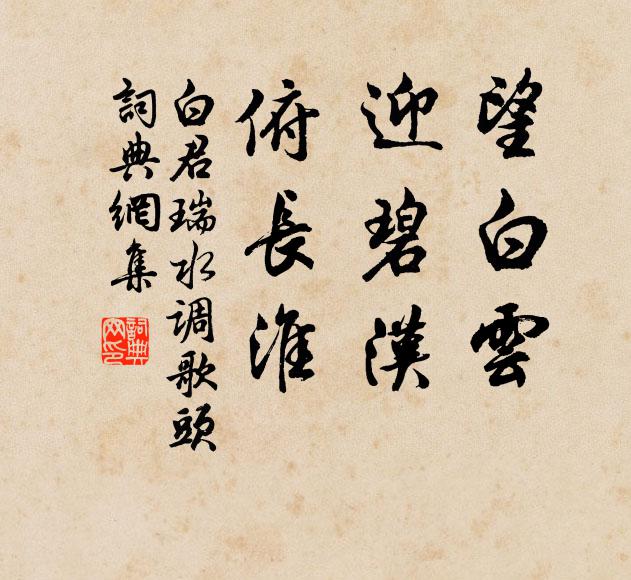 望白雲
迎碧漢
俯長淮
白君瑞水调歌頭
詞典網集
詞典網印